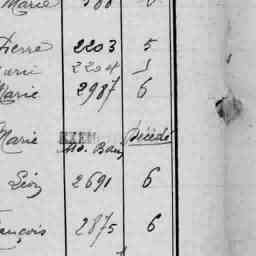 Marie
Pierre 2203 5
2204 1
Marie 2987 6
Marie Décédé
Léon 2691 6
François 2875 6